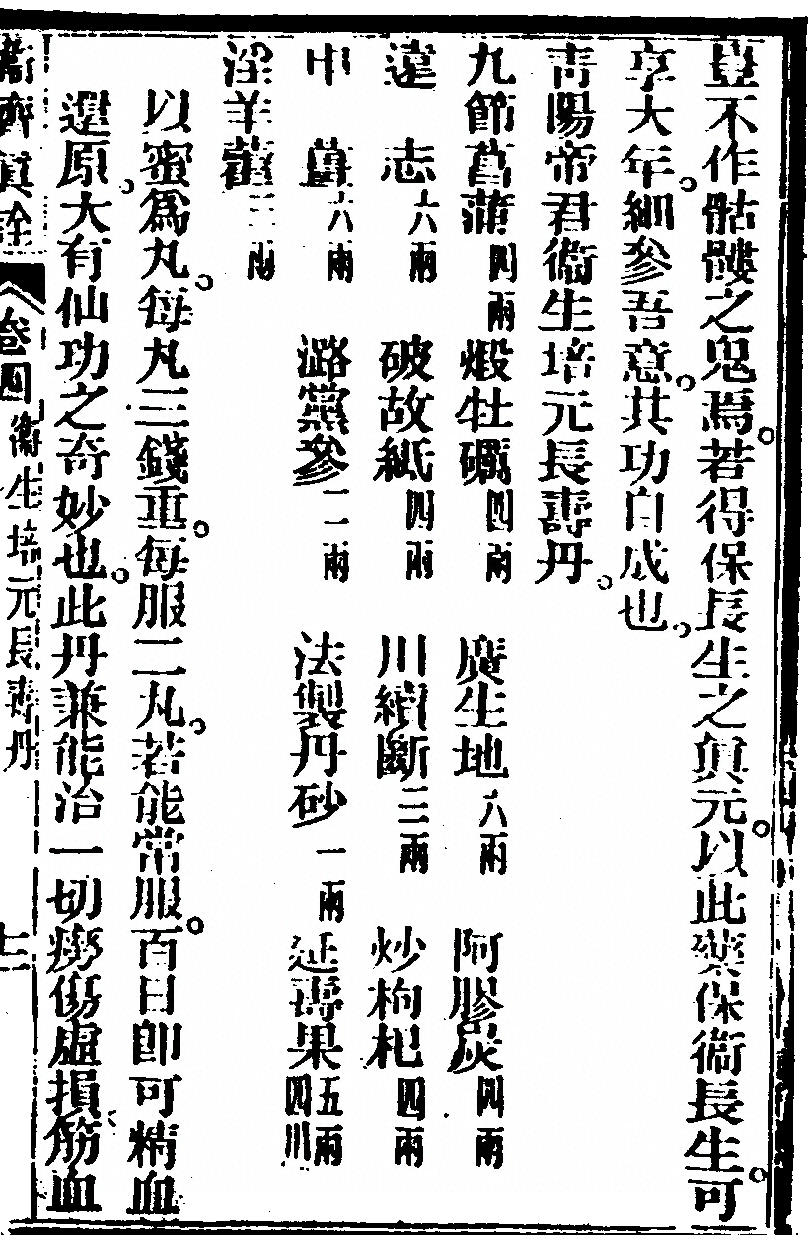 豈不作骷髏之鬼焉。若得保長生之眞元。以此藥保衞長生。可
享大年。細參吾意。其功自成也。
靑陽帝君衞生培元長壽丹。
九節菖蒲四兩 煅牡礪四兩 廣生地六兩 阿膠炭四兩
遠志六兩 破故紙四兩 川續斷三兩 炒枸杞四兩
申薑六兩 潞黨參二兩 法製丹砂一兩 延壽果五兩四川
淫羊藿三兩
以蜜爲丸。每丸三錢重。每服二丸。若能常服。百日卽可精血
還原。大有仙功之奇妙也。此丹兼能治一切癆傷虛損筋血
衞濟眞詮 卷四 衞生培元長壽丹 七